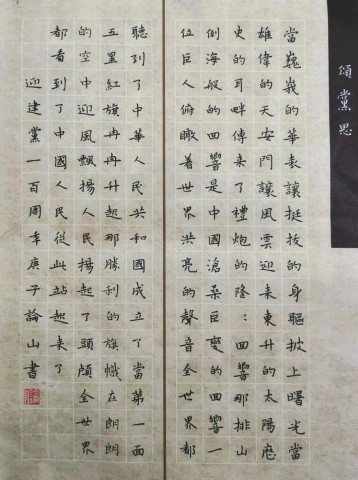 頌黨恩
當巍峩的華表讓挺拔的身軀披上曙光當
雄偉的天安門讓風雲迎来東升的太陽歷
史的耳畔傳来了禮炮的隆:回響那排山
倒海般的回響是中國滄桑巨變的回響一
位巨人俯瞰着世界洪亮的聲音全世界都
聽到了中華人民共和國成立了當第一面
五星紅旗冉冉升起那勝利的旗幟在朗朗
的空中迎風飄揚人民揚起了頭顱全世界
都看到了中國人民從此站起来了
迎建黨一百周年庚子論山書